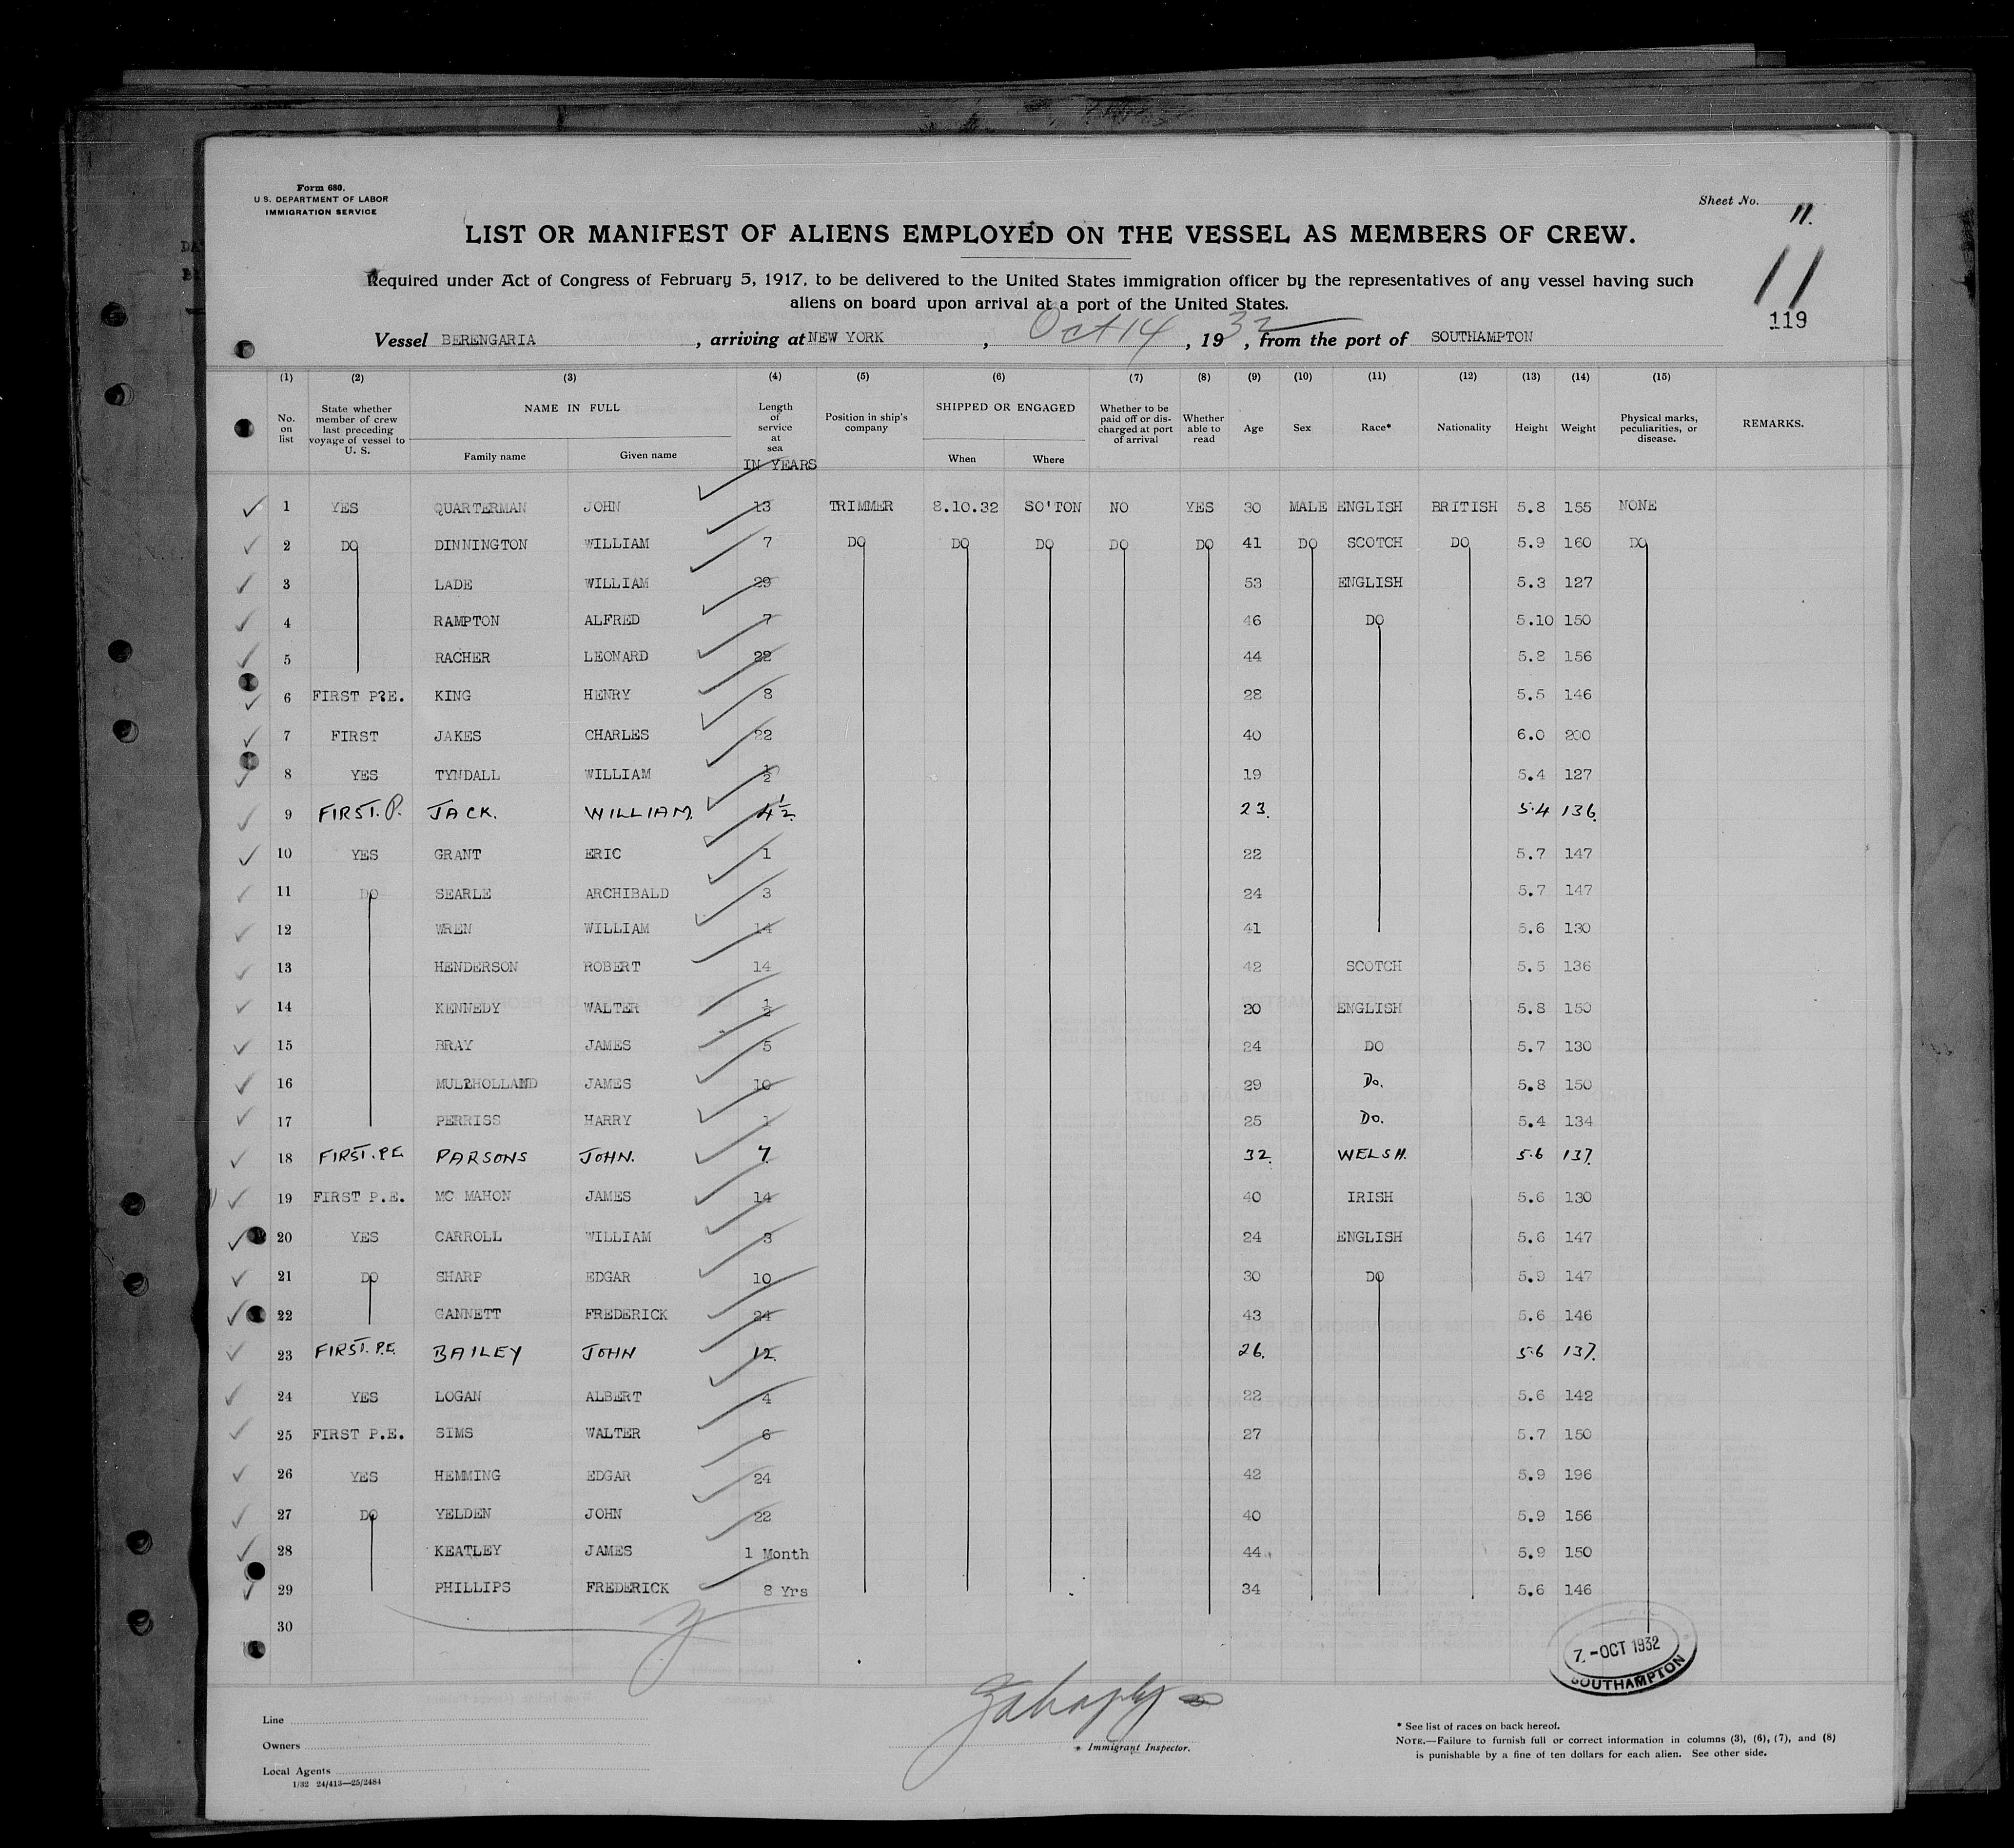 Form 680.
U.S. DEPARTMENT OF LABOR
IMMIGRATION SERVICE
Sheet No. 11.
LIST OR MANIFEST OF ALIENS EMPLOYED ON THE VESSEL AS MEMBERS OF CREW.
11
Required under Act of Congress of February 5, 1917, to be delivered to the United States immigration officer by the representatives of any vessel having such
aliens on board upon arrival at a port of the United States.
119
Vessel BERENGARIA, arriving at NEW YORK, Oct 14, 1932, from the port of SOUTHAMPTON
(1) (2) (3) (4) (5) (6) (7) (8) (9) (10) (11) (12) (13) (14) (15)
No. on list State whether member of crew last preceding voyage of vessel to U. S. NAME IN FULL Family name Given name Length of service at sea IN YEARS Position in ship's company SHIPPED OR ENGAGED When Where Whether to be paid off or discharged at port of arrival Whether able to read Age Sex Race* Nationality Height Weight Physical marks, peculiarities, or disease. REMARKS.
1 YES QUARTERMAN JOHN 13 TRIMMER 8.10.32 SO'TON NO YES 30 MALE ENGLISH BRITISH 5.8 155 NONE
2 DO DINNINGTON WILLIAM 7 DO DO DO DO DO 41 DO SCOTCH DO 5.9 160 DO
3 LADE WILLIAM 29 53 ENGLISH 5.3 127
4 RAMPTON ALFRED 7 46 DO 5.10 150
5 RACHER LEONARD 22 44 5.8 156
6 FIRST P.E. KING HENRY 8 28 5.5 146
7 FIRST JAKES CHARLES 22 40 6.0 200
8 YES TYNDALL WILLIAM ½ 19 5.4 127
9 FIRST. P. JACK. WILLIAM. 4½ 23. 5.4 136.
10 YES GRANT ERIC 1 22 5.7 147
11 DO SEARLE ARCHIBALD 3 24 5.7 147
12 WREN WILLIAM 14 41 5.6 130
13 HENDERSON ROBERT 14 42 SCOTCH 5.5 136
14 KENNEDY WALTER ½ 20 ENGLISH 5.8 150
15 BRAY JAMES 5 24 DO 5.7 130
16 MULHOLLAND JAMES 10 29 Do. 5.8 150
17 PERRISS HARRY 1 25 Do. 5.4 134
18 FIRST. P.E PARSONS JOHN. 7. 32. WELSH. 5.6 137.
19 FIRST P.E. MC MAHON JAMES 14 40 IRISH 5.6 130
20 YES CARROLL WILLIAM 3 24 ENGLISH 5.6 147
21 DO SHARP EDGAR 10 30 DO 5.9 147
22 GANNETT FREDERICK 24 43 5.6 146
23 FIRST. P.E. BAILEY JOHN 12. 26. 5.6 137.
24 YES LOGAN ALBERT 4 22 5.6 142
25 FIRST P.E. SIMS WALTER 6 27 5.7 150
26 YES HEMMING EDGAR 24 42 5.9 196
27 DO YELDEN JOHN 22 40 5.9 156
28 KEATLEY JAMES 1 Month 44 5.9 150
29 PHILLIPS FREDERICK 8 Yrs 34 5.6 146
30
7.-OCT 1932
SOUTHAMPTON
Line
Owners
Local Agents
1/32 24/413—25/2484
Immigrant Inspector.
* See list of races on back hereof.
NOTE.—Failure to furnish full or correct information in columns (3), (6), (7), and (8)
is punishable by a fine of ten dollars for each alien. See other side.